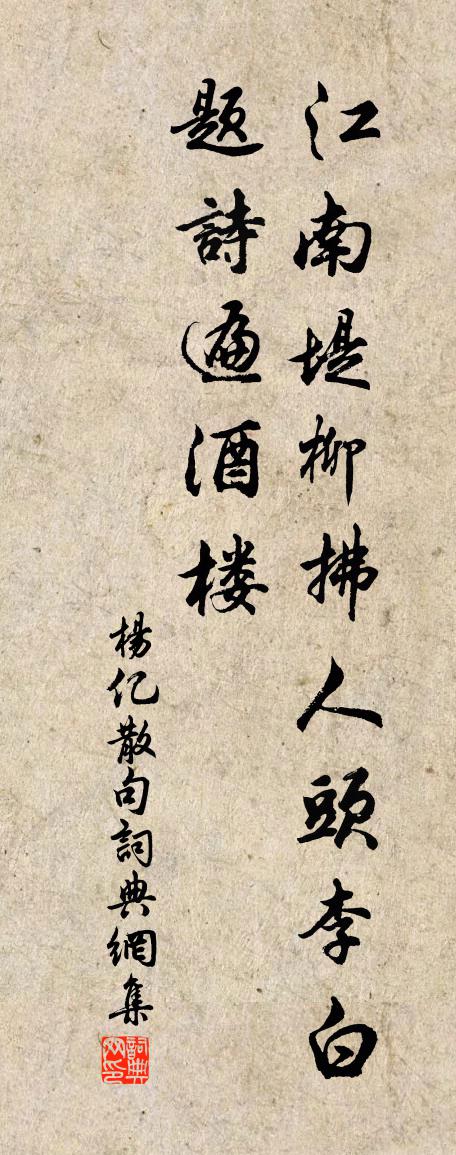 江南堤柳拂人頭李白
題詩遍酒楼
楊亿散句詞典網集
詞典网印